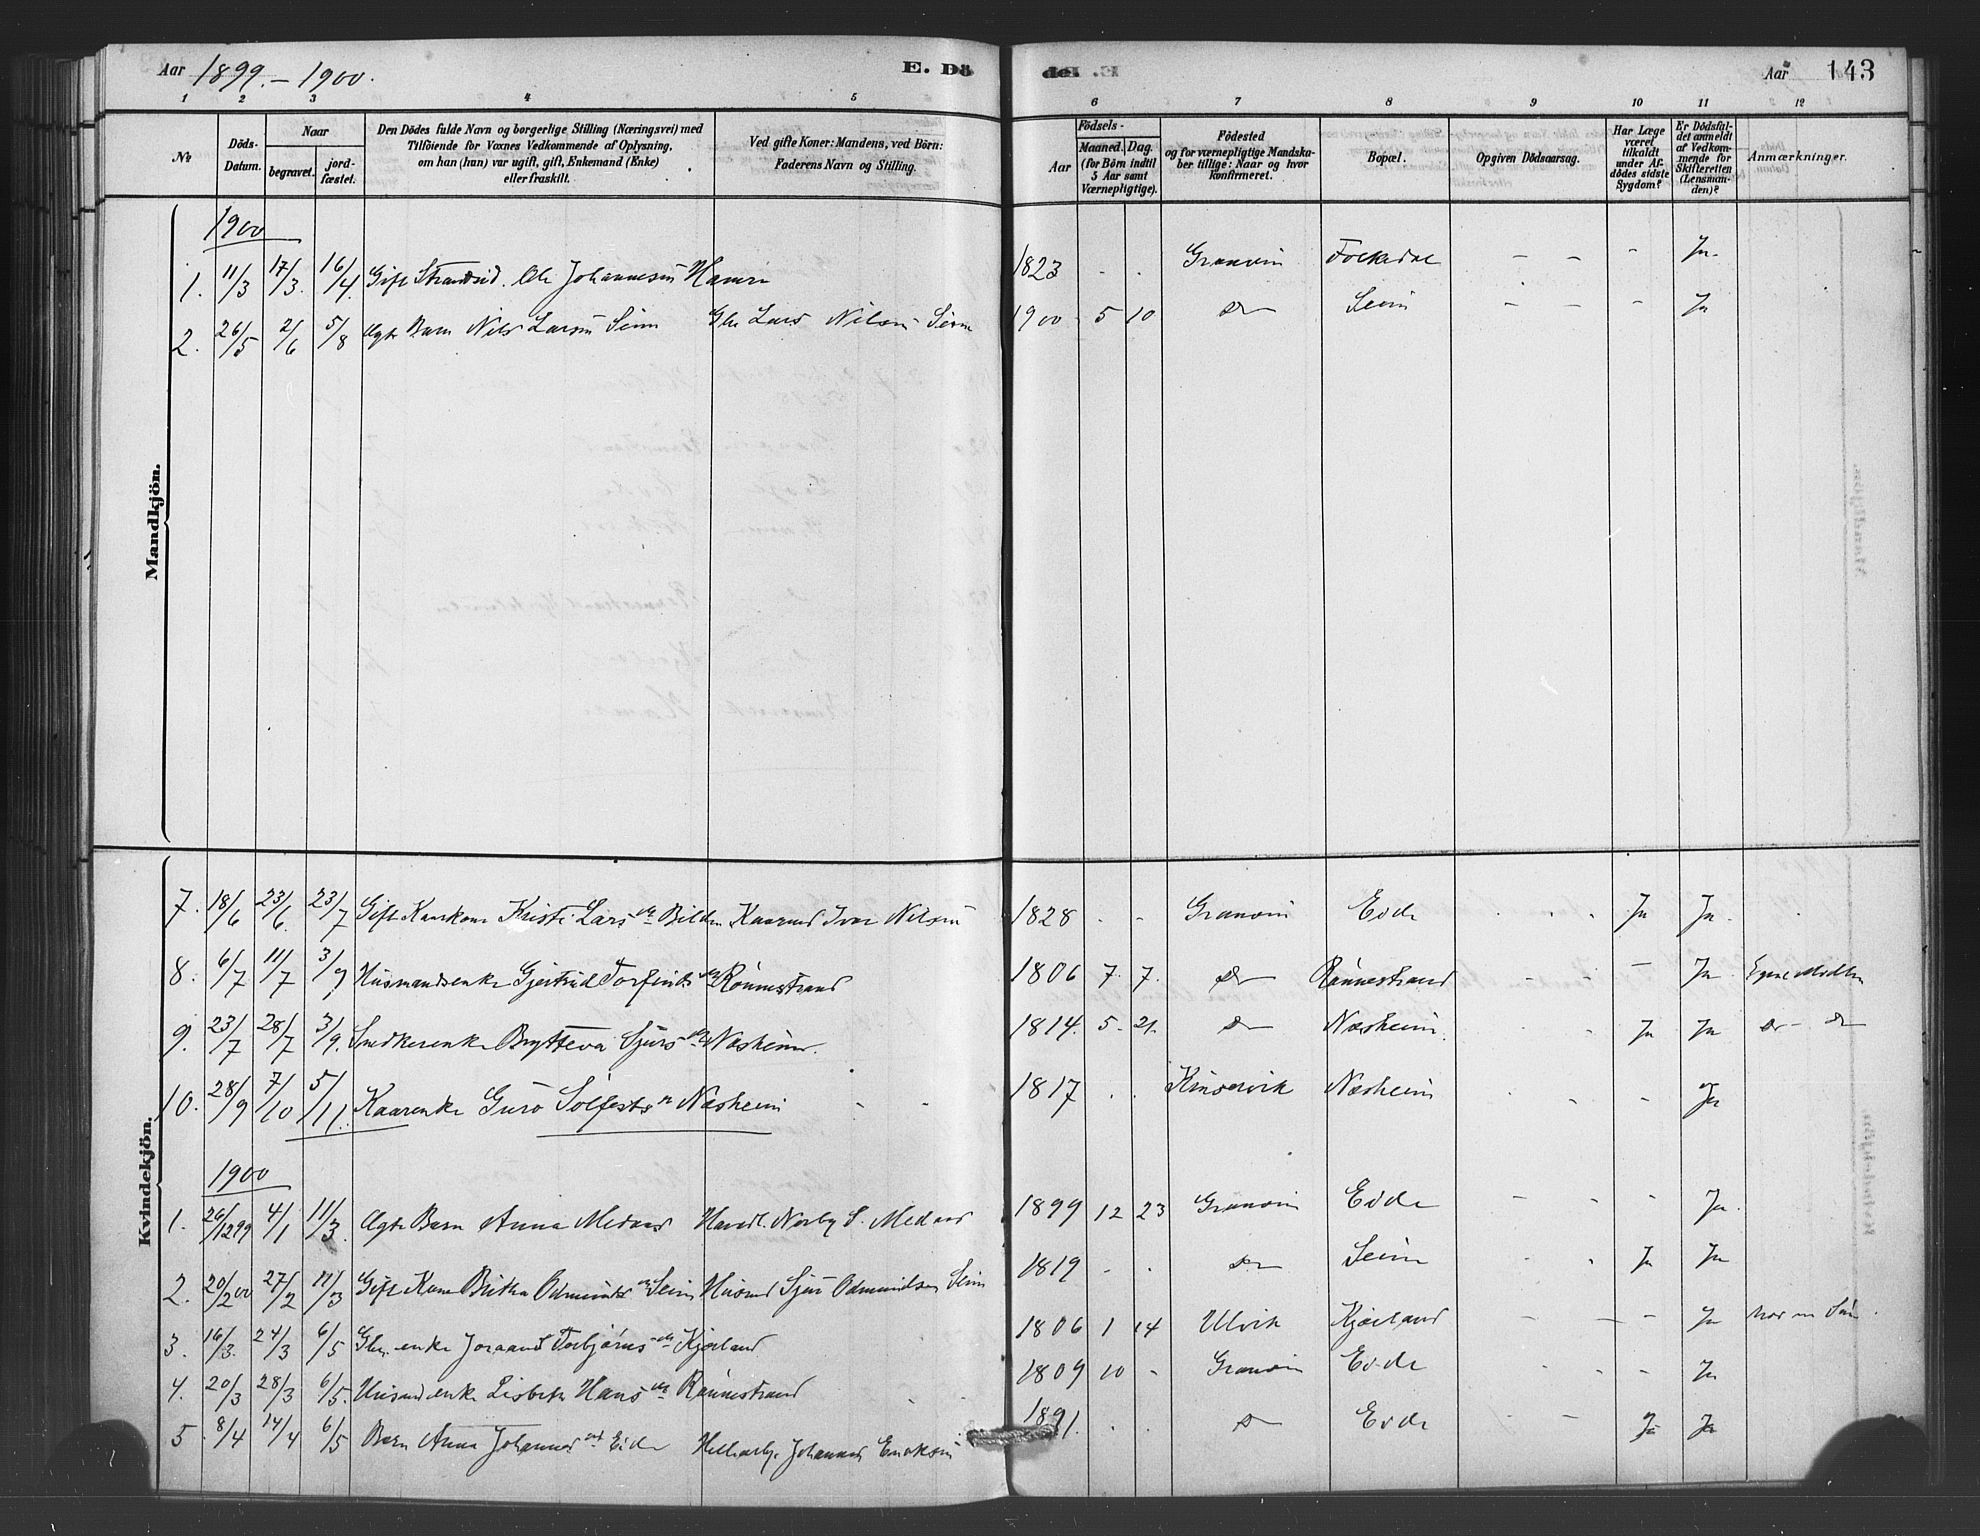 Aar 1899. – 1900.
E. Dö
Aar 143
1 2 3 4 5 6 7 8 9 10 11 12
No
Döds-Datum.
Naar
begravet.
jord-fæstet.
Den Dödes fulde Navn og borgerlige Stilling (Næringsvei) med
Tilföiende for Voxnes Vedkommende af Oplysning,
om han (hun) var ugift, gift, Enkemand (Enke)
eller fraskilt.
Ved gifte Koner: Mandens, ved Börn:
Faderens Navn og Stilling.
Födsels-
Aar
Maaned. Dag.
(for Börn indtil
5 Aar samt
Værnepligtige).
Födested
og for værnepligtige Mandska-
ber tillige: Naar og hvor
konfirmeret.
Bopæl.
Opgiven Dödsaarsag.
Har Læge
været
tilkaldt
under Af-
dödes sidste
Sygdom?
Er Dödsfal-
det anmeldt
af Vedkom-
mende for
Skifteretten
(Lensman-
den)?
Anmærkninger.
Mandkjön.
1900
1. 11/3 17/3. 16/4. Gift Strandsid. Ole Johannesen Hamre 1823 - - Granvin Folkedal - - - Ja.
2. 26/5 2/6 5/8 Ægte Barn Nils Larsen Seim Gbr Lars Nilsen Seim 1900 5 10 Do Seim - - - Ja
Kvindekjön.
7. 18/6 23/6. 23/7 Gift Kaarkone Kristi Larsdr Bilden Kaarmd Ivar Nilsen 1828 - - Granvin Eide - - - Ja Ja.
8. 6/7 11/7 3/9 Husmandsenke Gjertrud Torfindsdr Rönnestrand 1806 7. 7. Do Rönnestrand - - - Ja
9. 23/7 28/7 3/9. Snedkerenke Brytteva Sjursdr Næsheim. 1814. 5. 21. Do Næsheim. Ja Ja Do - Do
10. 28/9 7/10 5/11. Kaarenke Guro Solfestsdr Næsheim 1817 . . Kinservik Næsheim - Ja
1900
1. 26/12 99 4/1 11/3. Ægte Barn Anna Medaas Handl. Nerby S. Medaas 1899 12 23 Granvin Eide - - - Ja.
2. 20/2 00 27/2 11/3 Gift Kone Britha Odmundsdr Seim Husmd Sjur Odmundsen Seim 1819 - . Do Seim Ja Ja
3. 16/3. 24/3 6/5 Gbr. enke Joraand Torbjörnsdr Kjærland 1806 1 14 Ulvik Kjærland - - - Ja
4. 20/3 28/3 6/5. Husmd enke Lisbeth Hansdr Rönnestrand 1809 10 - Granvin Eide - - - Ja
5. 8/4 14/4 6/5 Barn Anna Johannesdt Eide Johannes Erikson 1891. . . Do Eide - - Ja Ja